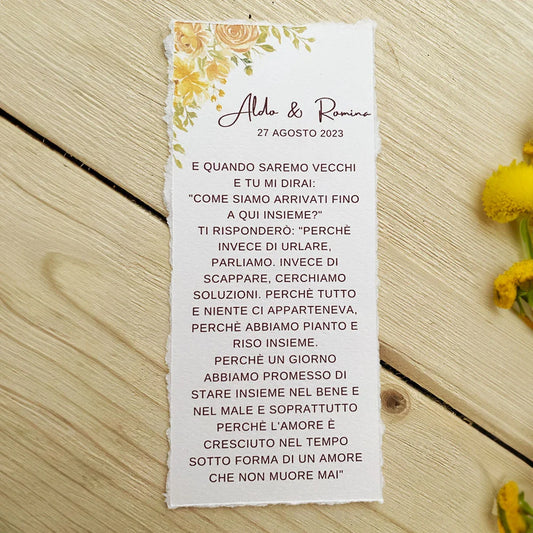 Aldo & Romina
27 AGOSTO 2023
E QUANDO SAREMO VECCHI
E TU MI DIRAI:
"COME SIAMO ARRIVATI FINO
A QUI INSIEME?"
TI RISPONDERÒ: "PERCHÈ
INVECE DI URLARE,
PARLIAMO. INVECE DI
SCAPPARE, CERCHIAMO
SOLUZIONI. PERCHÈ TUTTO
E NIENTE CI APPARTENEVA,
PERCHÈ ABBIAMO PIANTO E
RISO INSIEME.
PERCHÈ UN GIORNO
ABBIAMO PROMESSO DI
STARE INSIEME NEL BENE E
NEL MALE E SOPRATTUTTO
PERCHÈ L'AMORE È
CRESCIUTO NEL TEMPO
SOTTO FORMA DI UN AMORE
CHE NON MUORE MAI"